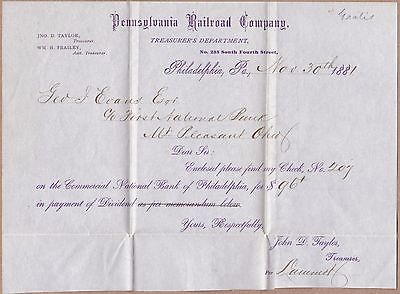 Pennsylvania Railroad Company,
JNO. D. TAYLOR,
Treasurer.
WM. H. FRAILEY,
Asst. Treasurer.
TREASURER'S DEPARTMENT,
No. 233 South Fourth Street,
Philadelphia, Pa., Nov 30th 1881
Geo J Evans Esq
c/o First National Bank
Mt Pleasant Ohio
Dear Sir:
Enclosed please find my Check, No. 207
on the Commercial National Bank of Philadelphia, for $96
in payment of Dividend as per memorandum below.
Yours, Respectfully,
John D. Taylor,
Treasurer,
Per